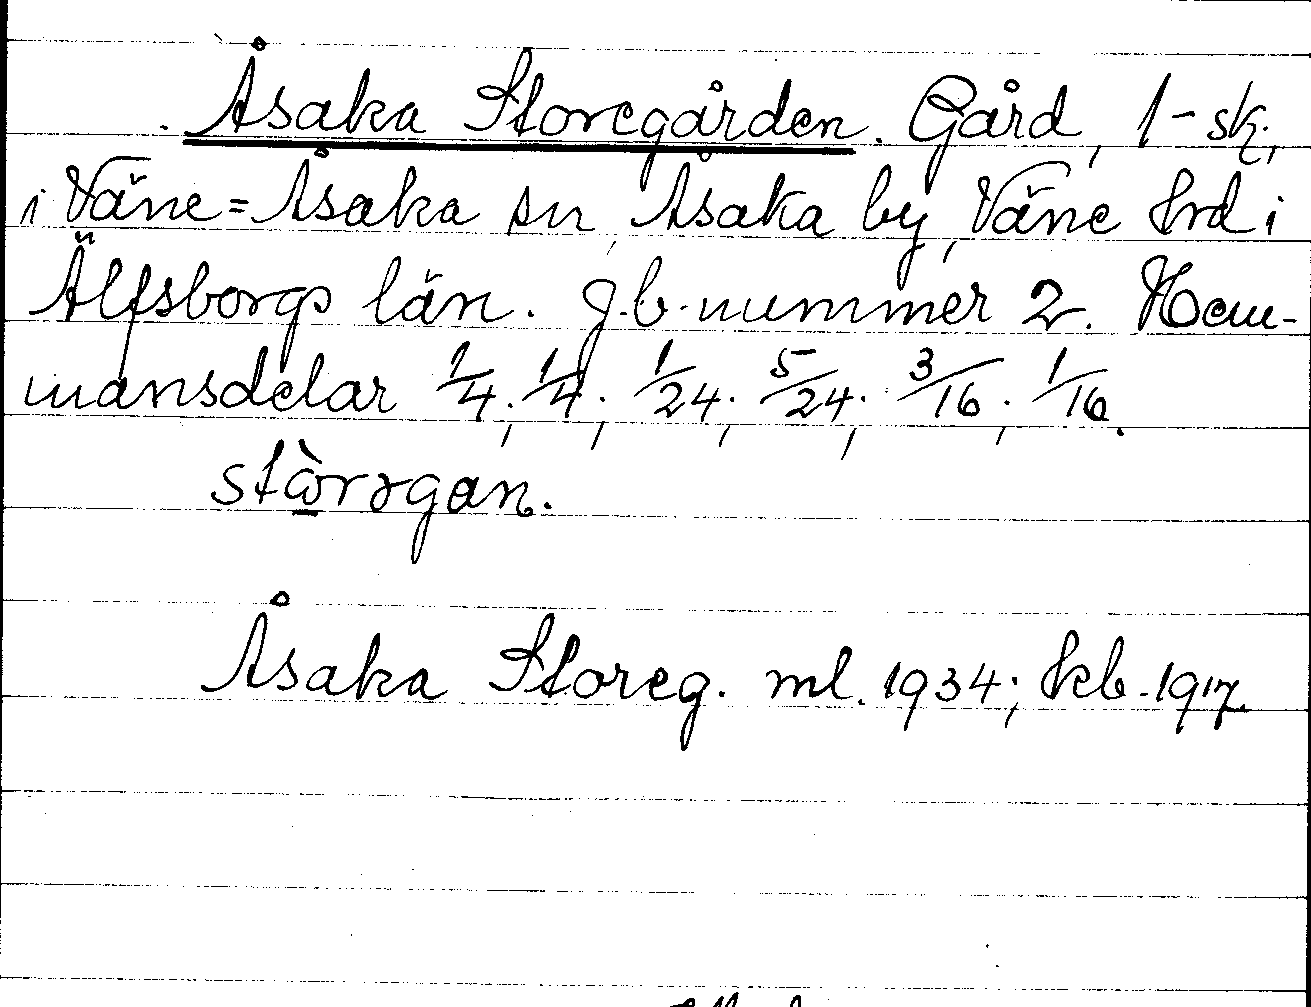 Åsaka Storegården. Gård, 1-sk.,
i Väne=Åsaka sn, Åsaka by, Väne hrd i
Älfsborgs län. g.b. nummer 2. Hem-
mansdelar 1/4; 1/4; 1/24; 5/24; 3/16; 1/16.
stòrəgan.
Åsaka Storeg. ml. 1934; kb. 1917.